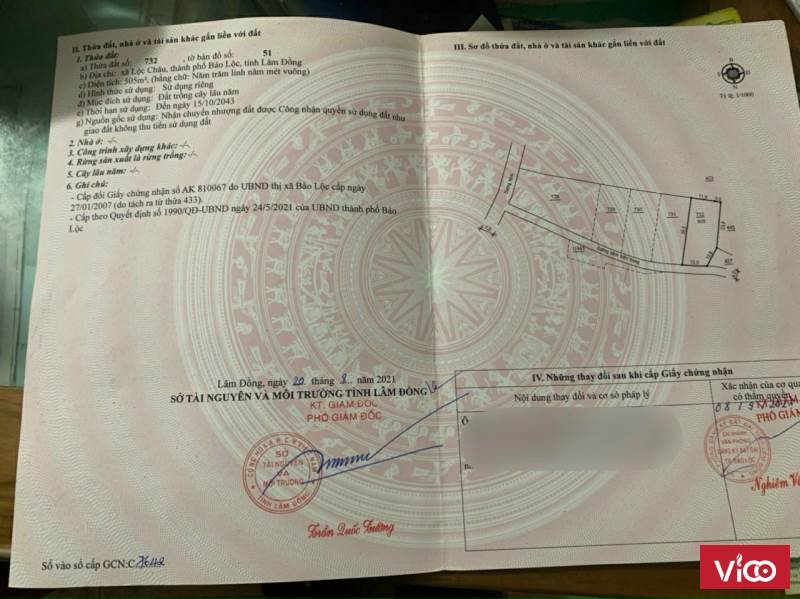 II. Thửa đất, nhà ở và tài sản khác gắn liền với đất
1. Thửa đất:
a) Thửa đất số: 732 , tờ bản đồ số: 51
b) Địa chỉ: xã Lộc Châu, thành phố Bảo Lộc, tỉnh Lâm Đồng
c) Diện tích: 505m², (bằng chữ: Năm trăm linh năm mét vuông)
d) Hình thức sử dụng: Sử dụng riêng
đ) Mục đích sử dụng: Đất trồng cây lâu năm
e) Thời hạn sử dụng: Đến ngày 15/10/2043
g) Nguồn gốc sử dụng: Nhận chuyển nhượng đất được Công nhận quyền sử dụng đất như
giao đất không thu tiền sử dụng đất
2. Nhà ở: -/-
3. Công trình xây dựng khác: -/-
4. Rừng sản xuất là rừng trồng: -/-
5. Cây lâu năm: -/-
6. Ghi chú:
- Cấp đổi Giấy chứng nhận số AK 810067 do UBND thị xã Bảo Lộc cấp ngày
27/01/2007 (do tách ra từ thửa 433).
- Cấp theo Quyết định số 1990/QĐ-UBND ngày 24/5/2021 của UBND thành phố Bảo
Lộc
Lâm Đồng, ngày 20 tháng 8 năm 2021
SỞ TÀI NGUYÊN VÀ MÔI TRƯỜNG TỈNH LÂM ĐỒNG
KT. GIÁM ĐỐC
PHÓ GIÁM ĐỐC
SỞ
TÀI NGUYÊN
VÀ
MÔI TRƯỜNG
TỈNH LÂM ĐỒNG
Trần Quốc Trường
Số vào sổ cấp GCN:C
III. Sơ đồ thửa đất, nhà ở và tài sản khác gắn liền với đất
Tỷ lệ: 1/1000
732
505
IV. Những thay đổi sau khi cấp Giấy chứng nhận
Nội dung thay đổi và cơ sở pháp lý
Xác nhận của cơ qua
có thẩm quyền
PHÓ GIÁM
Nghiêm V
VICO